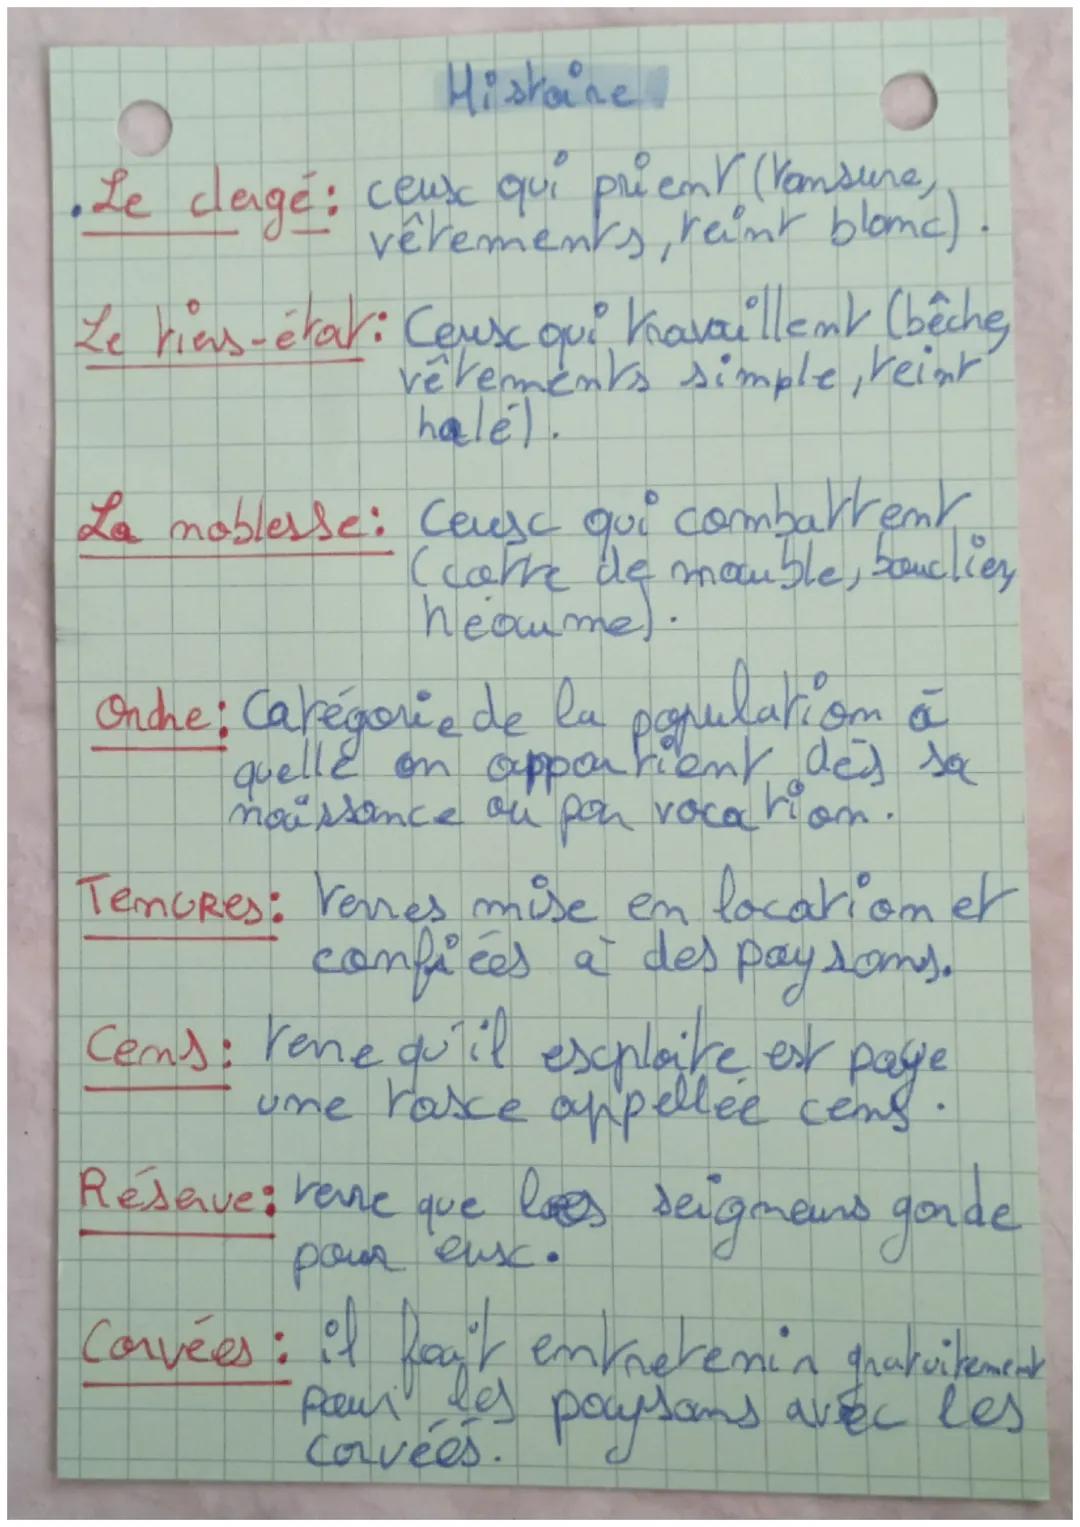 Histoire
. Le clergé : ceux qui prient (tonsure,
vêtements, teint blanc).
Le tiers-état : Ceux qui travaillent (bêche,
vêtements simple, teint
halé).
La noblesse : Ceux qui combattent
(cotte de mauble, bouclier,
heaume).
Ordre : Catégorie de la population à
quelle on appartient dès sa
naissance ou par vocation.
Tenures : terres mise en location et
confiées à des paysans.
Cens : terre qu'il exploite est paye
une taxe appellée cens.
Réserve : terre que les seigneurs garde
pour eux.
Corvées : il fait entretenir gratuitement
pour les paysans avec les
corvées.